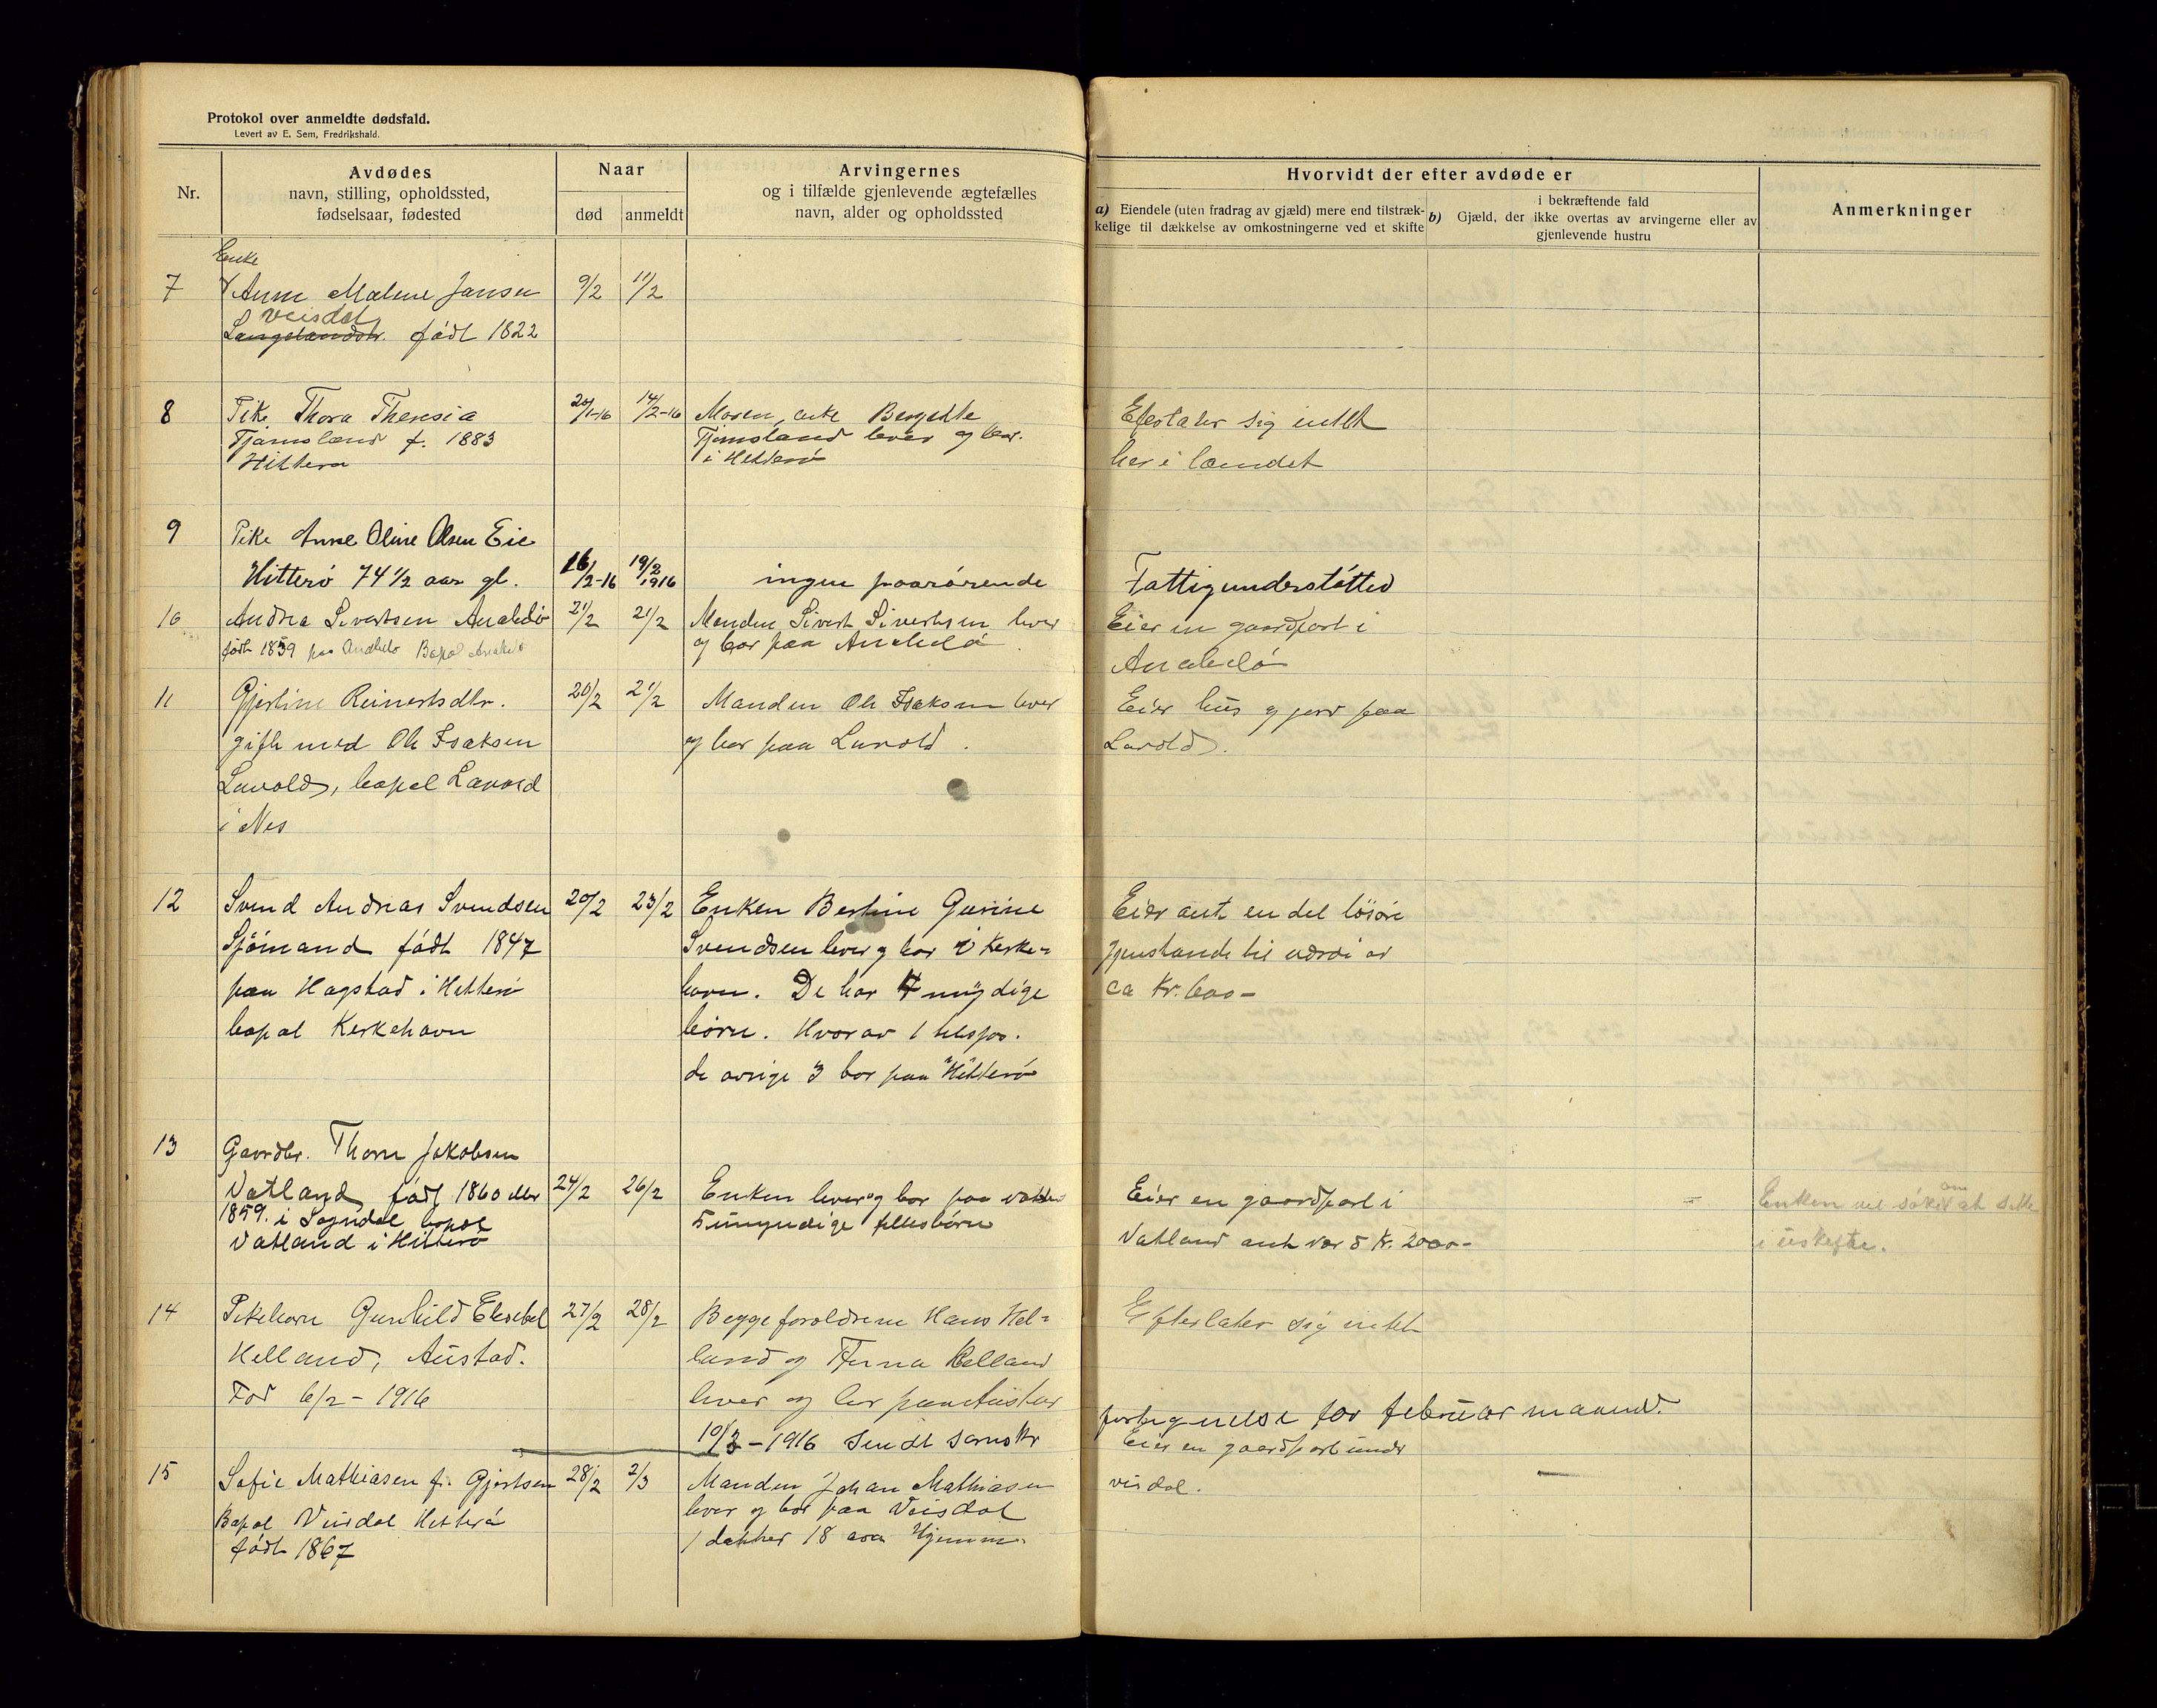 Protokol over anmeldte dødsfald.
Levert av E. Sem, Fredrikshald.
Nr.
Avdødes
navn, stilling, opholdssted,
fødselsaar, fødested
Naar
død
anmeldt
Arvingernes
og i tilfælde gjenlevende ægtefælles
navn, alder og opholdssted
Hvorvidt der efter avdøde er
a) Eiendele (uten fradrag av gjæld) mere end tilstræk-
kelige til dækkelse av omkostningerne ved et skifte
i bekræftende fald
b) Gjæld, der ikke overtas av arvingerne eller av
gjenlevende hustru
Anmerkninger
Enke
7 Anne Malene Jansen 9/2 11/2
Veisdal
født 1822
8 Pike Thora Theresia 20/1-16 14/2-16 Moren, enke Bergitte
Tjømsland f. 1883 Tjømsland lever og bor
Hitterø i Hitterø
Efterlater sig intet
her i landet
9 Pike Anne Oline Olsen Eie
Hitterø 74 1/2 aar gl. 16/2-16 19/2 1916 ingen paarørende
Fattigunderstøttet
10 Andrea Sivertsen Anabelø 21/2 21/2 Manden Sivert Sivertsen lever
født 1859 paa Andbelø Bopæl Anabelø og bor paa Anabelø
Eier en gaardpart i
Anabelø
11 Gjertine Reinertsdtr. 20/2 21/2 Manden Ole Isaksen lever
gift med Ole Isaksen og bor paa Lavold.
Lavold, bopæl Lavold
i Nes
Eier hus og jord paa
Lavold.
12 Svend Andreas Svendsen 20/2 23/2 Enken Bertine Gurine
Sjømand født 1847 Svendsen lever og bor i Kirke-
paa Hagstad i Hitterø havn. De har 4 myndige
bopæl Kirkehavn børn. Hvorav 1 utlspor.
de øvrige 3 bor paa Hitterø
Eier ant en del løsøre
gjenstande til værdi av
ca Kr. 600-
13 Gaardbr. Thore Jakobsen
Vatland født 1860 eller 24/2 26/2 Enken lever og bor paa Vatland
1859. i Sogndal bopæl 5 umyndige fellesbørn
Vatland i Hitterø
Eier en gaardpart i
Vatland ant værd Kr. 2000-
Enken vil søke om at sitte
i uskifte.
14 Pikebarn Gunhild Elisebet 27/2 28/2 Begge forældrene Hans Hel-
Helland, Austad. land og Helland
Fød 6/2-1916 lever og bor paa Austad
Efterlater sig intet
10/3-1916 sendt fortegnelse for februar maaned.
15 Sofie Mathiasen f. Gjertsen 28/2 2/3 Manden Johan Mathiasen
Bopæl Veisdal Hitterø lever og bor paa Veisdal
født 1867 1 datter 18 aar Hjemme
Eier en gaardpart under
Veisdal.